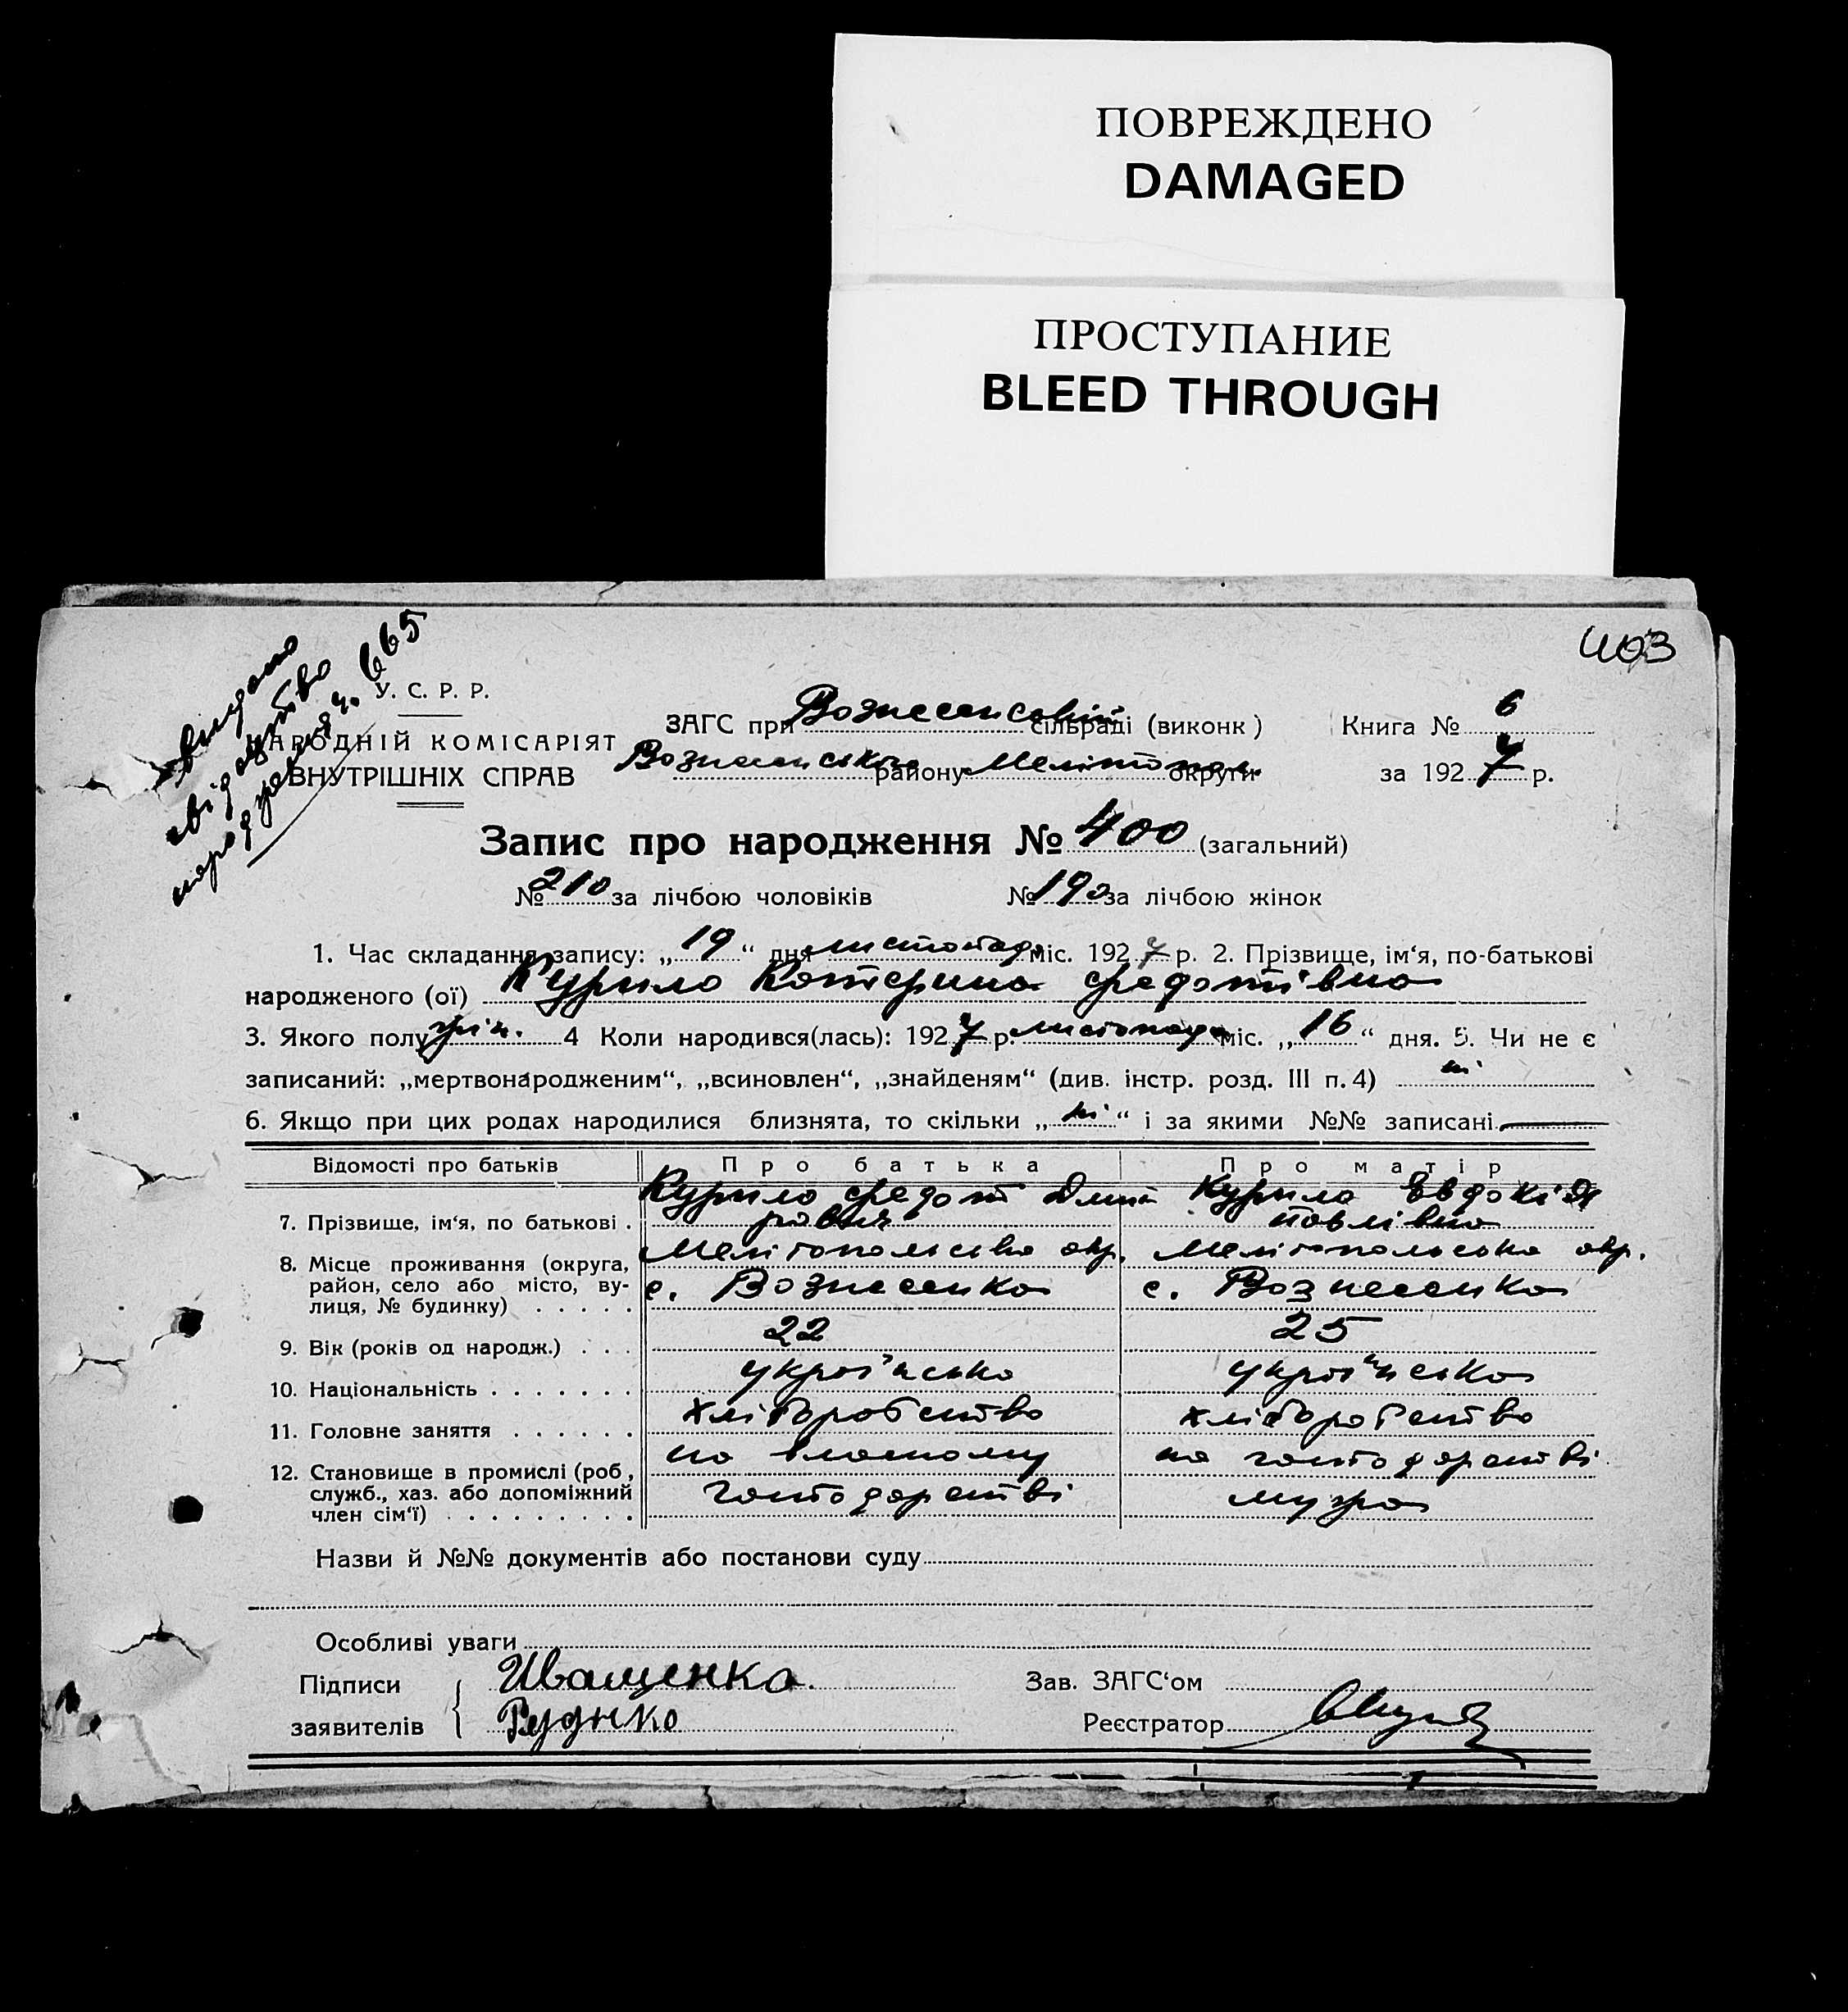 ПОВРЕЖДЕНО
DAMAGED
ПРОСТУПАНИЕ
BLEED THROUGH
403
видано
свідоцтво
народження ч. 665
У. С. Р. Р.
НАРОДНІЙ КОМІСАРІЯТ
ВНУТРІШНІХ СПРАВ
ЗАГС при Вознесенській сільраді (виконк)
Вознесенського району Мелітопол. округи
Книга № 6
за 1927 р.
Запис про народження № 400 (загальний)
№ 210 за лічбою чоловіків № 190 за лічбою жінок
1. Час складання запису: „19“ дня листопада міс. 1927 р. 2. Прізвище, ім‘я, по-батькові
народженого (ої) Курило Катерина Федотівна
3. Якого полу жін. 4 Коли народився(лась): 1927 р. листопада міс. „16“ дня. 5. Чи не є
записаний: „мертвонародженим“, „всиновлен“, „знайденям“ (див. інстр. розд. III п. 4) ні
6. Якщо при цих родах народилися близнята, то скільки „ні“ і за якими №№ записані
Відомості про батьків Про батька Про матір
7. Прізвище, ім‘я, по батькові . Курило Федот Дмит Курило Євдокія
рович Павлівна
8. Місце проживання (округа, Мелітопольська окр. Мелітопольська окр.
район, село або місто, ву- с. Вознесенка с. Вознесенка
лиця, № будинку) . . . . .
9. Вік (років од народж.) . . . 22 25
10. Національність . . . . . . . українська українська
11. Головне заняття . . . . . . хліборобство хліборобство
12. Становище в промислі (роб, на власному на господарстві
служб., хаз. або допоміжний господарстві мужа
член сім‘ї) . . . . . . . . .
Назви й №№ документів або постанови суду
Особливі уваги
Підписи Иващенко Зав. ЗАГС‘ом
заявителів Руднко Реєстратор